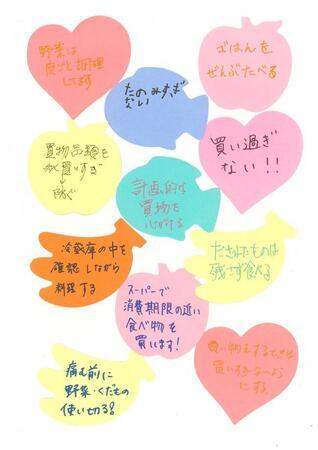 野菜は
皮ごと調理
してます
ごはんを
ぜんぶたべる
たのみすぎ
ない
買物品類を
買いすぎ
防ぐ
買い過ぎ
ない!!
計画的な
買物を
心がける
冷蔵庫の中を
確認しながら
料理する
だされたものは
残さず食べる
スーパーで
消費期限の近い
食べ物を
買います!
痛む前に
野菜・くだもの
使い切る!
買い物をするときは
買いすぎないように
する。